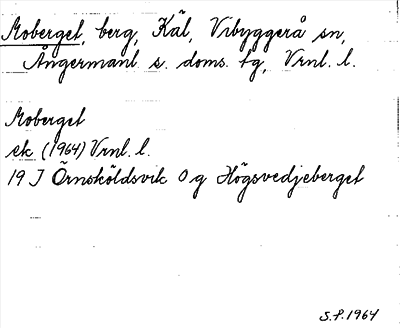 Moberget, berg, Käl, Vibyggerå sn,
Ångermanl s. doms. tg, Vrnl. l.
Moberget
ek (1964) Vrnl. l.
19 J Örnsköldsvik O g Högsvedjeberget
S.P. 1964